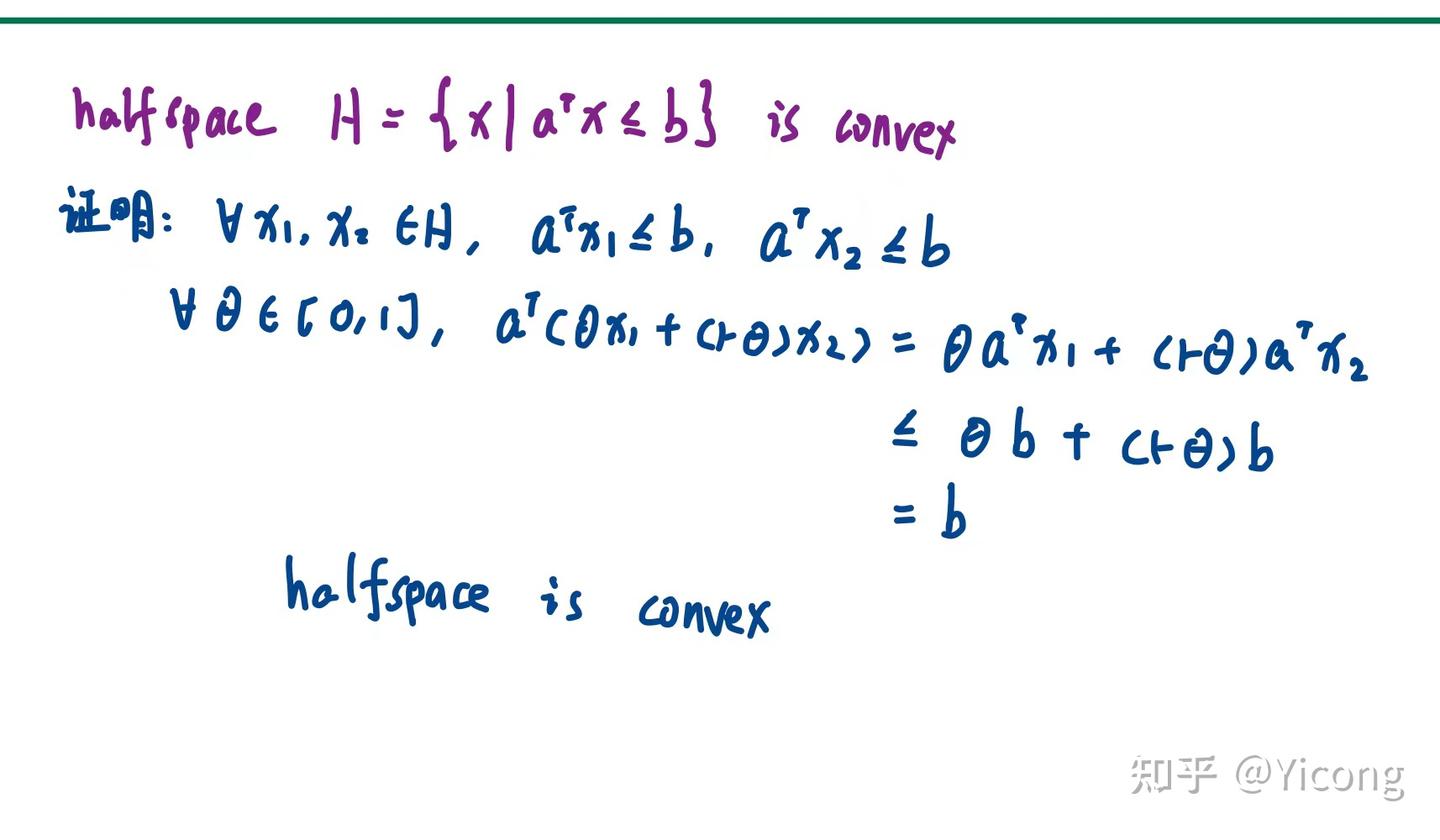 halfspace H = {x | aᵀx ≤ b} is convex
证明: ∀ x₁, x₂ ∈ H, aᵀx₁ ≤ b, aᵀx₂ ≤ b
∀ θ ∈ [0,1], aᵀ(θx₁ + (1-θ)x₂) = θaᵀx₁ + (1-θ)aᵀx₂
≤ θb + (1-θ)b
= b
halfspace is convex
知乎 @Yicong